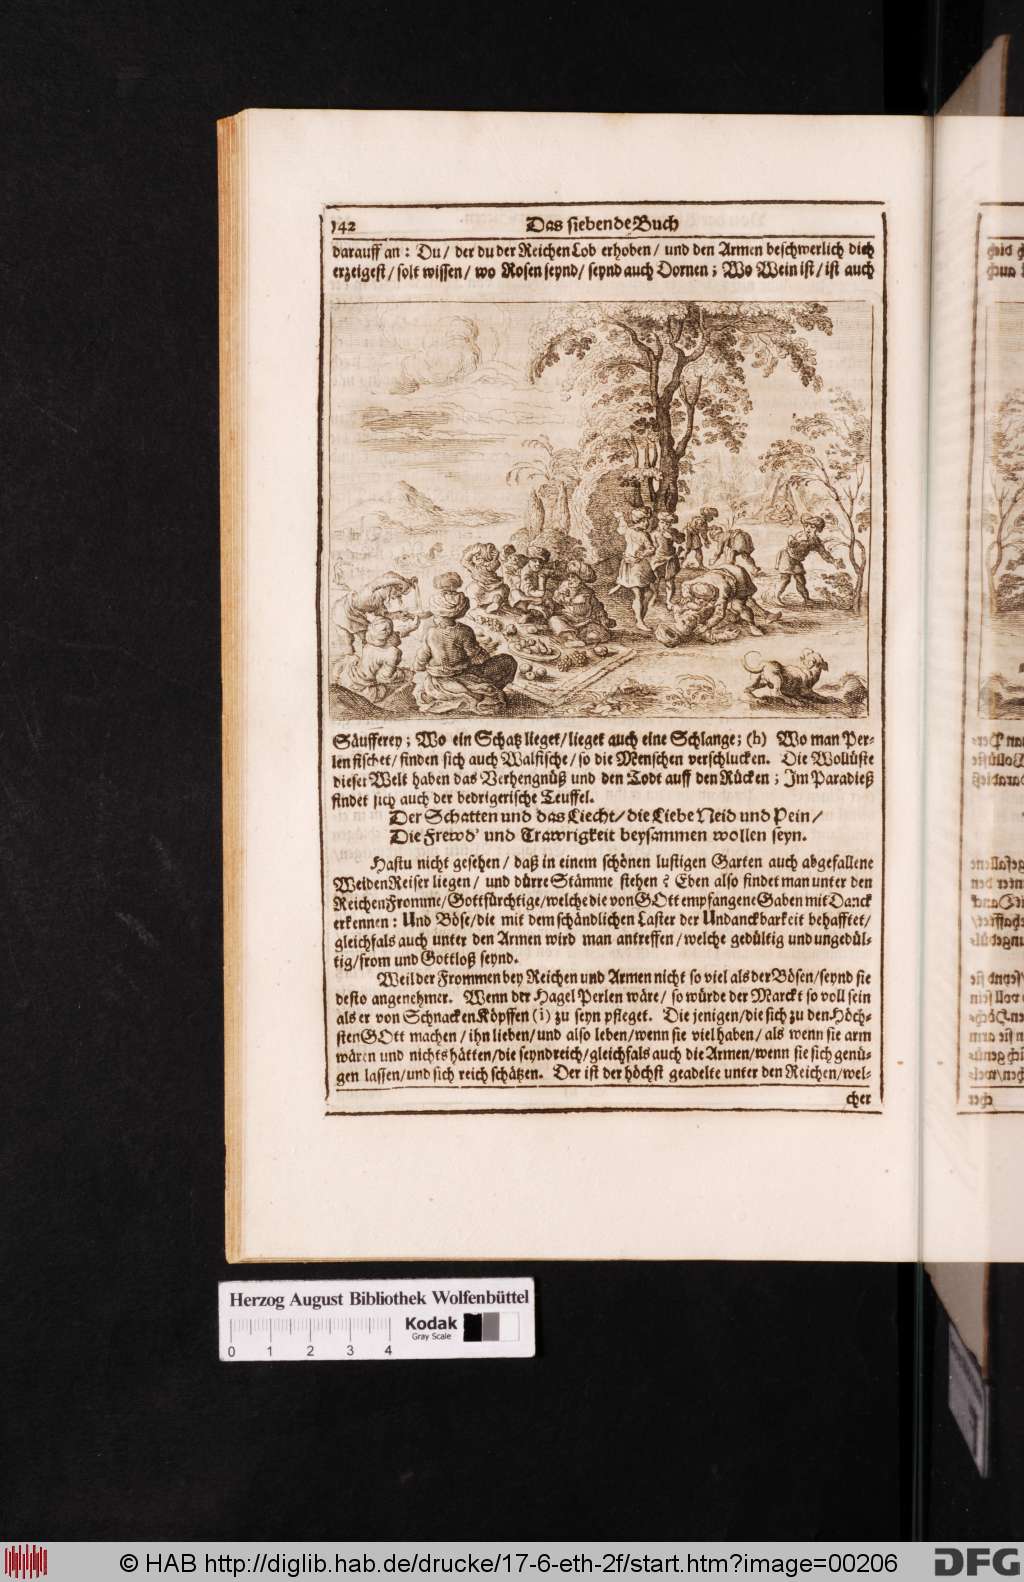 142 Das siebende Buch
darauff an: Du/ der du der Reichen Lob erhoben/ und den Armen beschwerlich dich
erzeigest/ solt wissen/ wo Rosen seynd/ seynd auch Dornen; Wo Wein ist/ ist auch
Säufferey; Wo ein Schatz lieget/ lieget auch eine Schlange; (h) Wo man Per-
len fischet/ finden sich auch Walfische/ so die Menschen verschlucken. Die Wollüste
dieser Welt haben das Verhengnüß und den Todt auff den Rücken; Im Paradieß
findet sich auch der betrigerische Teuffel.
Der Schatten und das Liecht/ die Liebe Neid und Pein/
Die Frewd' und Trawrigkeit beysammen wollen seyn.
Hastu nicht gesehen/ daß in einem schönen lustigen Garten auch abgefallene
Weiden Reiser liegen/ und dürre Stämme stehen? Eben also findet man unter den
Reichen Fromme/ Gottfürchtige/ welche die von GOtt empfangene Gaben mit Danck
erkennen: Und Böse/ die mit dem schändlichen Laster der Undanckbarkeit behafftet/
gleichfals auch unter den Armen wird man antreffen/ welche gedültig und ungedül-
tig/ from und Gottloß seynd.
Weil der Frommen bey Reichen und Armen nicht so viel als der Bösen/ seynd sie
desto angenehmer. Wenn der Hagel Perlen wäre/ so würde der Marckt so voll sein
als er von Schnacken Köpffen (i) zu seyn pfleget. Die jenigen/ die sich zu den Höch-
sten GOtt machen/ ihn lieben/ und also leben/ wenn sie viel haben/ als wenn sie arm
wären und nichts hätten/ die seynd reich/ gleichfals auch die Armen/ wenn sie sich genü-
gen lassen/ und sich reich schätzen. Der ist der höchst geadelte unter den Reichen/ wel-
cher
Herzog August Bibliothek Wolfenbüttel
Kodak
Gray Scale
0 1 2 3 4
© HAB http://diglib.hab.de/drucke/17-6-eth-2f/start.htm?image=00206
DFG